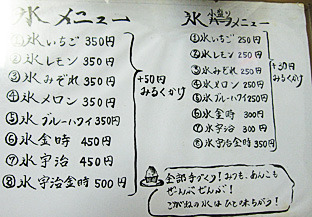 氷メニュー
①氷いちご 350円
②氷レモン 350円
③氷みぞれ 350円
④氷メロン 350円
⑤氷ブルーハワイ 350円
⑥氷金時 450円
⑦氷宇治 450円
⑧氷宇治金時 500円
+50円
みるくかけ
氷小盛りハーフメニュー
①氷いちご 250円
②氷レモン 250円
③氷みぞれ 250円
④氷メロン 250円
⑤氷ブルーハワイ 250円
⑥氷金時 300円
⑦氷宇治 300円
⑧氷宇治金時 350円
+50円
みるくかけ
全部手づくり!みつも、あんこも
ぜーんぶぜんぶ!
こがねの氷はひと味ちがう!